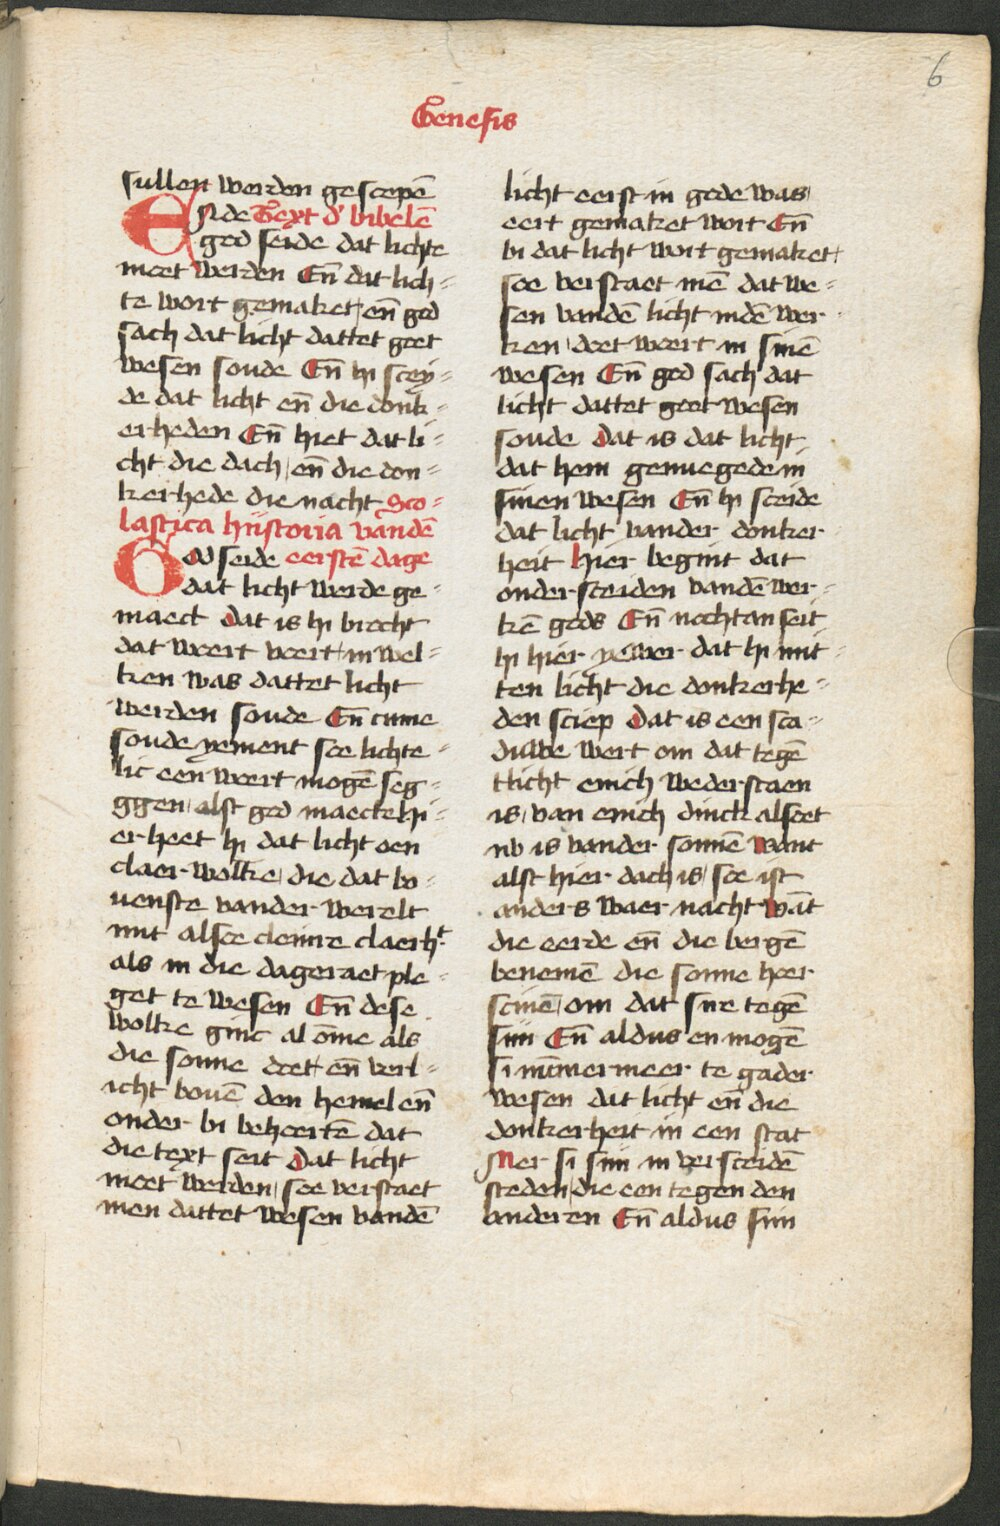 6
Genesis
sullen werden gescepē
Ende Text d' bibelē
god seide dat lichte
moet werden Eñ dat lich-
te wort gemaket, eñ god
sach dat licht dattet goet
wesen soude Eñ hi scey-
de dat licht eñ die donk-
erheden Eñ hiet dat li-
cht die dach, eñ die don-
kerhede die nacht Sco-
lastica historia vandē
God seide eerstē dage
dat licht werde ge-
maect dat is hi brocht
dat woert voert, in wel-
ken was dattet licht
werden soude Eñ cume
soude yement soe lichte-
lic een woert mogē seg-
ggen, alst god maecte hi-
er heet hi dat licht een
claer wolke, die dat bo-
uenste vander werelt
mit alsoe cleinre claerht
als in die dageraet ple-
get te wesen Eñ dese
wolke ginc al ōme als
die sonne doet, eñ verl-
icht bouē den hemel eñ
onder bi beheertē dat
die text seit Dat licht
moet werden, soe verstaet
men dattet wesen vandē
licht eerst in gode was,
eert gemaket wort Eñ
bi dat licht wort gemaket,
soe verstaet mē dat we-
sen vandē licht indē wer-
ken, doet weert in sinē
wesen Eñ god sach dat
licht dattet goet wesen
soude Dat is dat licht
dat hem genuegede in
sinen wesen Eñ hi sceide
dat licht vander donker
heit Hier begint dat
ondersceiden vandē wer-
kē gods Eñ nochtan seit
hi hier yewer dat hi mit-
ten licht die donkerhe-
den sciep Dat is een sca-
duwe wert om dat tegē
tlicht enich wederstaen
is, van enich dinck alsoet
nv is vander sonnē Want
alst hier dach is, soe ist
anders waer nacht wāt
die eerde eñ die bergē
benemē die sonne hoer
scinē, om dat sire tegē
sijn Eñ aldus en mogē
si nūmermeer te gader
wesen dit licht eñ die
donkerheit in een stat
Mer si sijn in versceidē
steden, die een tegen den
anderen Eñ aldus sijn